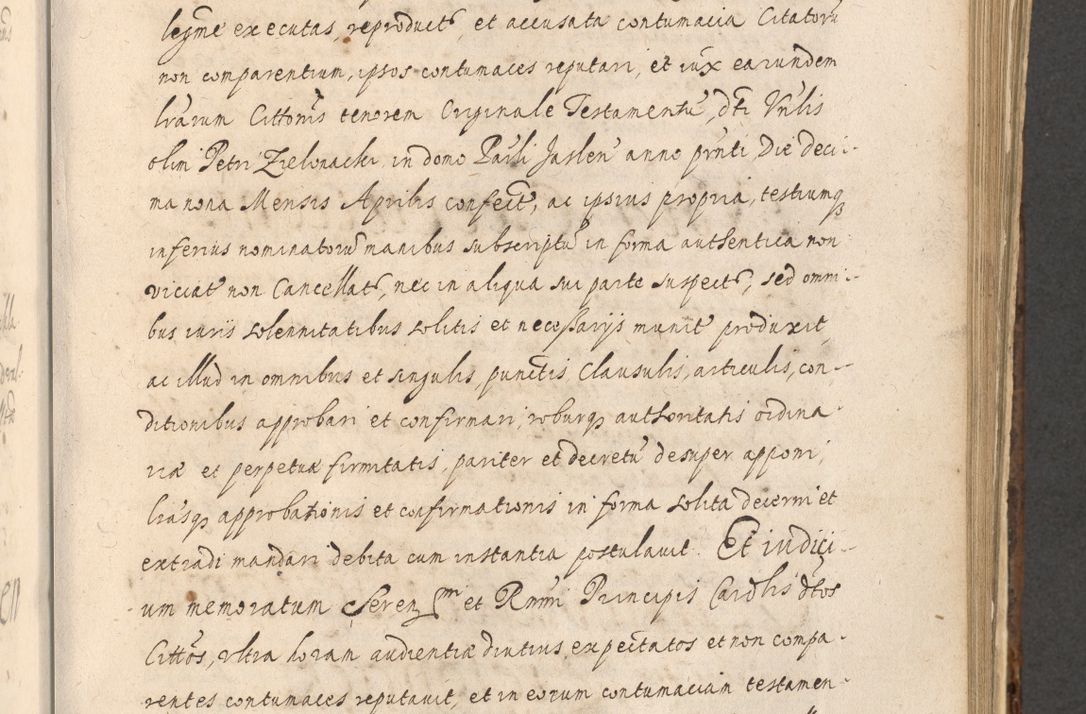 legme executas, reproduct, et accusata contumacia Citatorū
non comparentium, ipsos contumaces reputari, et iuxᵃ earundem
lrarum Cittonis tenorem Originale Testamentū dti Vnlis
olim Petri Zielonacki in domo Pauli Jaslen anno prnti Die deci-
ma nona Mensis Aprilis confect, ac ipsius propria, testiumq
inferius nominatorū manibus subscriptū in forma authentica non
viciat non Cancellat, nec in aliqua sui parte suspect, sed omni-
bus iuris solennitatibus solitis et necessarijs munit produxit,
ac illud in omnibus et singulis, punctis Clausulis, articulis, con-
ditionibus approbari et confirmari, roburq authoritatis ordina-
riæ et perpetuæ firmitatis, pariter et decretū desuper apponi,
lrasq approbationis et confirmationis in forma solita decerni et
extradi mandari debita cum instantia postulavit. Et iudici-
um memoratum Serenᵐⁱ et Rmmi Principis Cardlis dtos
Cittos, vltra horam audientiæ diutius expectatos et non compa-
rentes contumaces reputavit, et in eorum contumaciam testamen-